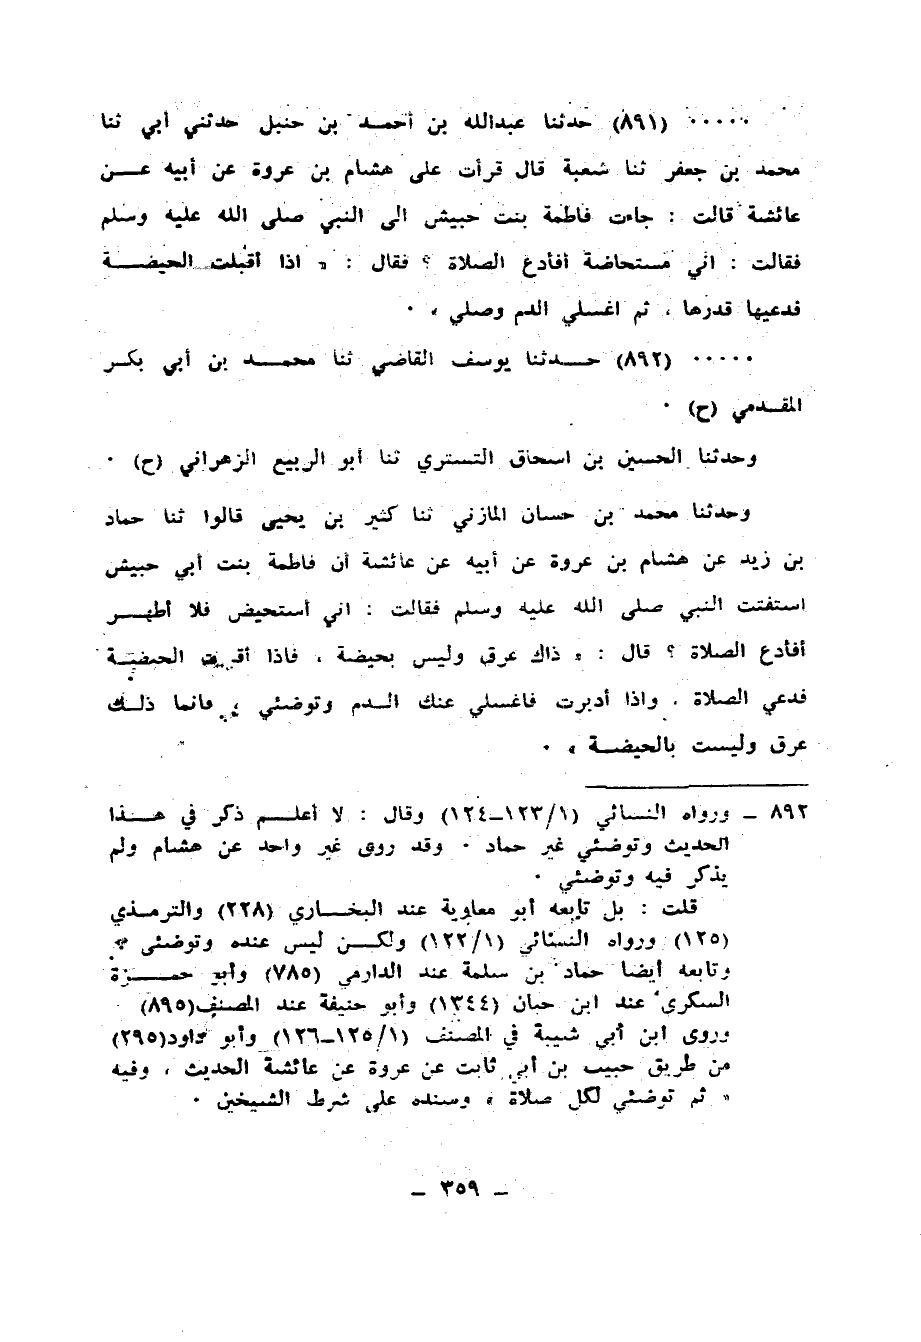 ٠٠٠٠٠ (٨٩١) حدثنا عبدالله بن أحمـد بن حنبل حدثني أبي ثنا
محمد بن جعفر ثنا شعبة قال قرأت على هشام بن عروة عن أبيه عـن
عائشة قالت : جاءت فاطمة بنت حبيش الى النبي صلى الله عليه وسلم
فقالت : اني مستحاضة أفأدع الصلاة ؟ فقال : « اذا أقبلت الحيضـة
فدعيها قدرها ، ثم اغسلي الدم وصلي » ٠
٠٠٠٠٠ (٨٩٢) حـدثنا يوسف القاضي ثنا محمـد بن أبي بكـر
المقـدمي (ح) ٠
وحدثنا الحسين بن اسحاق التستري ثنا أبو الربيع الزهراني (ح) ٠
وحدثنا محمد بن حسان المازني ثنا كثير بن يحيى قالوا ثنا حماد
بن زيد عن هشام بن عروة عن أبيه عن عائشة أن فاطمة بنت أبي حبيش
استفتت النبي صلى الله عليه وسلم فقالت : اني أستحيض فلا أطهـر
أفأدع الصلاة ؟ قال : « ذاك عرق وليس بحيضة ، فاذا أقبلت الحيضـة
فدعي الصلاة ، واذا أدبرت فاغسلي عنك الـدم وتوضئي ، فانما ذلـك
عرق وليست بالحيضـة » ٠
٨٩٢ ـ ورواه النسائي (١/١٢٣ـ١٢٤) وقال : لا أعلـم ذكر في هـذا
الحديث وتوضئي غير حماد ٠ وقد روى غير واحد عن هشام ولم
يذكر فيه وتوضئي ٠
قلت : بل تابعه أبو معاوية عند البخـاري (٢٢٨) والترمـذي
(١٢٥) ورواه النسائي (١/١٢٢) ولكـن ليس عنده وتوضئي »
وتابعه أيضا حماد بن سلمة عند الدارمي (٧٨٥) وأبو حمـزة
السكري عند ابن حبان (١٣٤٤) وأبو حنيفة عند المصنف(٨٩٥)
وروى ابن أبي شيبة في المصنف (١/١٢٥ـ١٢٦) وأبو داود(٢٩٥)
من طريق حبيب بن أبي ثابت عن عروة عن عائشة الحديث ، وفيه
« ثم توضئي لكل صلاة » وسنده على شرط الشيخين ٠
ـ ٣٥٩ ـ